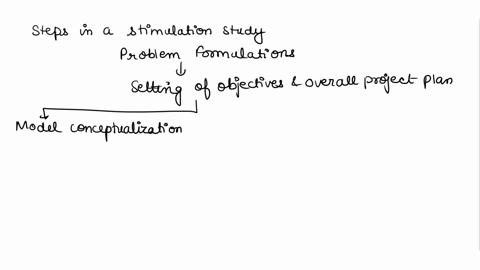 Steps in a stimulation study
Problem formulations
Setting of objectives & overall project plan
Model conceptualization